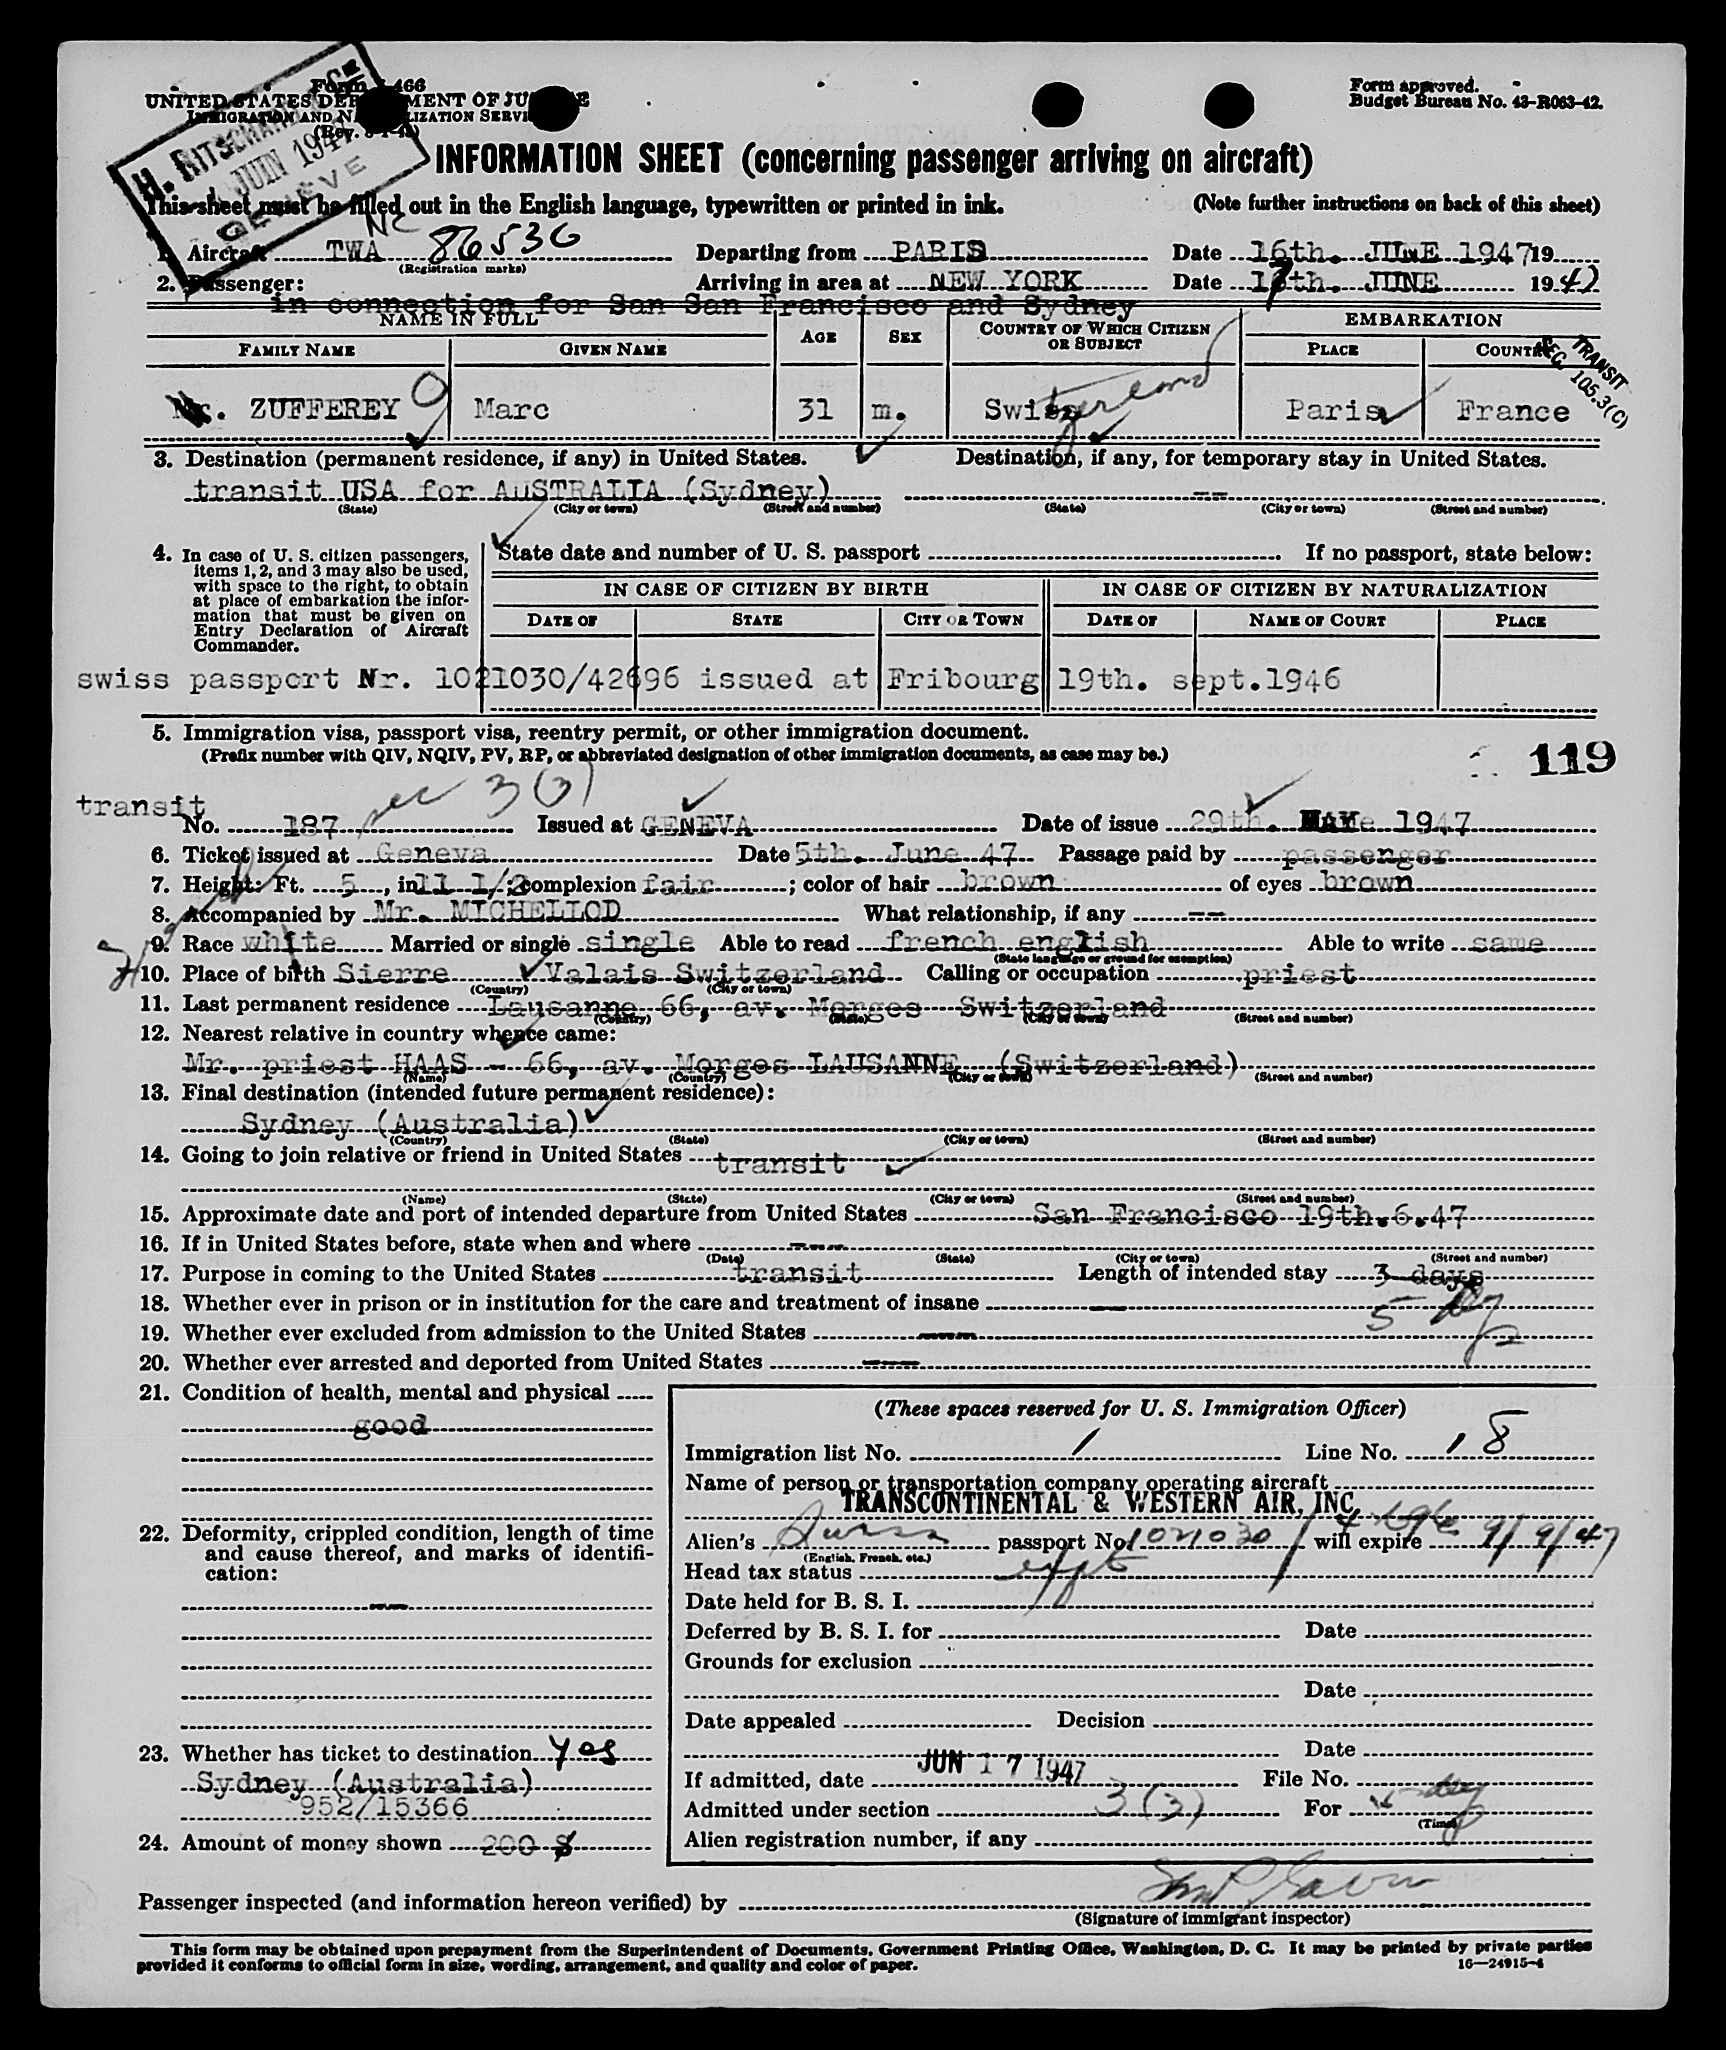 Form I-466
UNITED STATES DEPARTMENT OF JUSTICE
IMMIGRATION AND NATURALIZATION SERVICE
(Rev. 8-1-45)
Form approved.
Budget Bureau No. 43-R063-42.
H. RITSCHARD & Cie
JUIN 1947
GENÈVE
INFORMATION SHEET (concerning passenger arriving on aircraft)
This sheet must be filled out in the English language, typewritten or printed in ink. (Note further instructions on back of this sheet)
1. Aircraft TWA NC 86536 Departing from PARIS Date 16th. JUNE 1947 19
(Registration marks)
2. Passenger: Arriving in area at NEW YORK Date 17th. JUNE 1947
in connection for San San Francisco and Sydney
NAME IN FULL AGE SEX COUNTRY OF WHICH CITIZEN OR SUBJECT EMBARKATION
FAMILY NAME GIVEN NAME PLACE COUNTRY
TRANSIT
SEC. 105.3(C)
Mr. ZUFFEREY Marc 31 m. Swiss Paris France
3. Destination (permanent residence, if any) in United States. Destination, if any, for temporary stay in United States.
transit USA for AUSTRALIA (Sydney) --
(State) (City or town) (Street and number) (State) (City or town) (Street and number)
4. In case of U. S. citizen passengers, items 1, 2, and 3 may also be used, with space to the right, to obtain at place of embarkation the information that must be given on Entry Declaration of Aircraft Commander.
State date and number of U. S. passport If no passport, state below:
IN CASE OF CITIZEN BY BIRTH IN CASE OF CITIZEN BY NATURALIZATION
DATE OF STATE CITY OR TOWN DATE OF NAME OF COURT PLACE
swiss passport Nr. 1021030/42696 issued at Fribourg 19th. sept.1946
5. Immigration visa, passport visa, reentry permit, or other immigration document.
(Prefix number with QIV, NQIV, PV, RP, or abbreviated designation of other immigration documents, as case may be.)
119
sec 3(3)
transit
No. 187 Issued at GENEVA Date of issue 29th. MAY 1947
6. Ticket issued at Geneva Date 5th. June 47 Passage paid by passenger
7. Height: Ft. 5, in 11 1/2; complexion fair; color of hair brown of eyes brown
8. Accompanied by Mr. MICHELLOD What relationship, if any --
9. Race white Married or single single Able to read french english Able to write same
(State language or ground for exemption)
10. Place of birth Sierre Valais Switzerland Calling or occupation priest
(Country) (City or town)
11. Last permanent residence Lausanne 66, av. Morges Switzerland
(Country) (State) (City or town) (Street and number)
12. Nearest relative in country whence came:
Mr. priest HAAS - 66, av. Morges LAUSANNE (Switzerland)
(Name) (Country) (City or town) (Street and number)
13. Final destination (intended future permanent residence):
Sydney (Australia)
(Country) (State) (City or town) (Street and number)
14. Going to join relative or friend in United States transit
(Name) (State) (City or town) (Street and number)
15. Approximate date and port of intended departure from United States San Francisco 19th.6.47
16. If in United States before, state when and where ---
(Date) (State) (City or town) (Street and number)
17. Purpose in coming to the United States transit Length of intended stay 3 days
18. Whether ever in prison or in institution for the care and treatment of insane --
5
19. Whether ever excluded from admission to the United States ---
20. Whether ever arrested and deported from United States ---
21. Condition of health, mental and physical
good
22. Deformity, crippled condition, length of time and cause thereof, and marks of identification:
--
23. Whether has ticket to destination yes
Sydney (Australia)
952/15366
24. Amount of money shown 200 $
(These spaces reserved for U. S. Immigration Officer)
Immigration list No. 1 Line No. 18
Name of person or transportation company operating aircraft
TRANSCONTINENTAL & WESTERN AIR, INC.
Alien's Swiss passport No. 1021030/42696 will expire 9/9/47
(English, French, etc.)
Head tax status expt
Date held for B. S. I.
Deferred by B. S. I. for Date
Grounds for exclusion
Date
Date appealed Decision
Date
If admitted, date JUN 17 1947 File No.
Admitted under section 3(3) For 5 day
(Time)
Alien registration number, if any
Passenger inspected (and information hereon verified) by
(Signature of immigrant inspector)
This form may be obtained upon prepayment from the Superintendent of Documents, Government Printing Office, Washington, D. C. It may be printed by private parties
provided it conforms to official form in size, wording, arrangement, and quality and color of paper. 16—24915-4